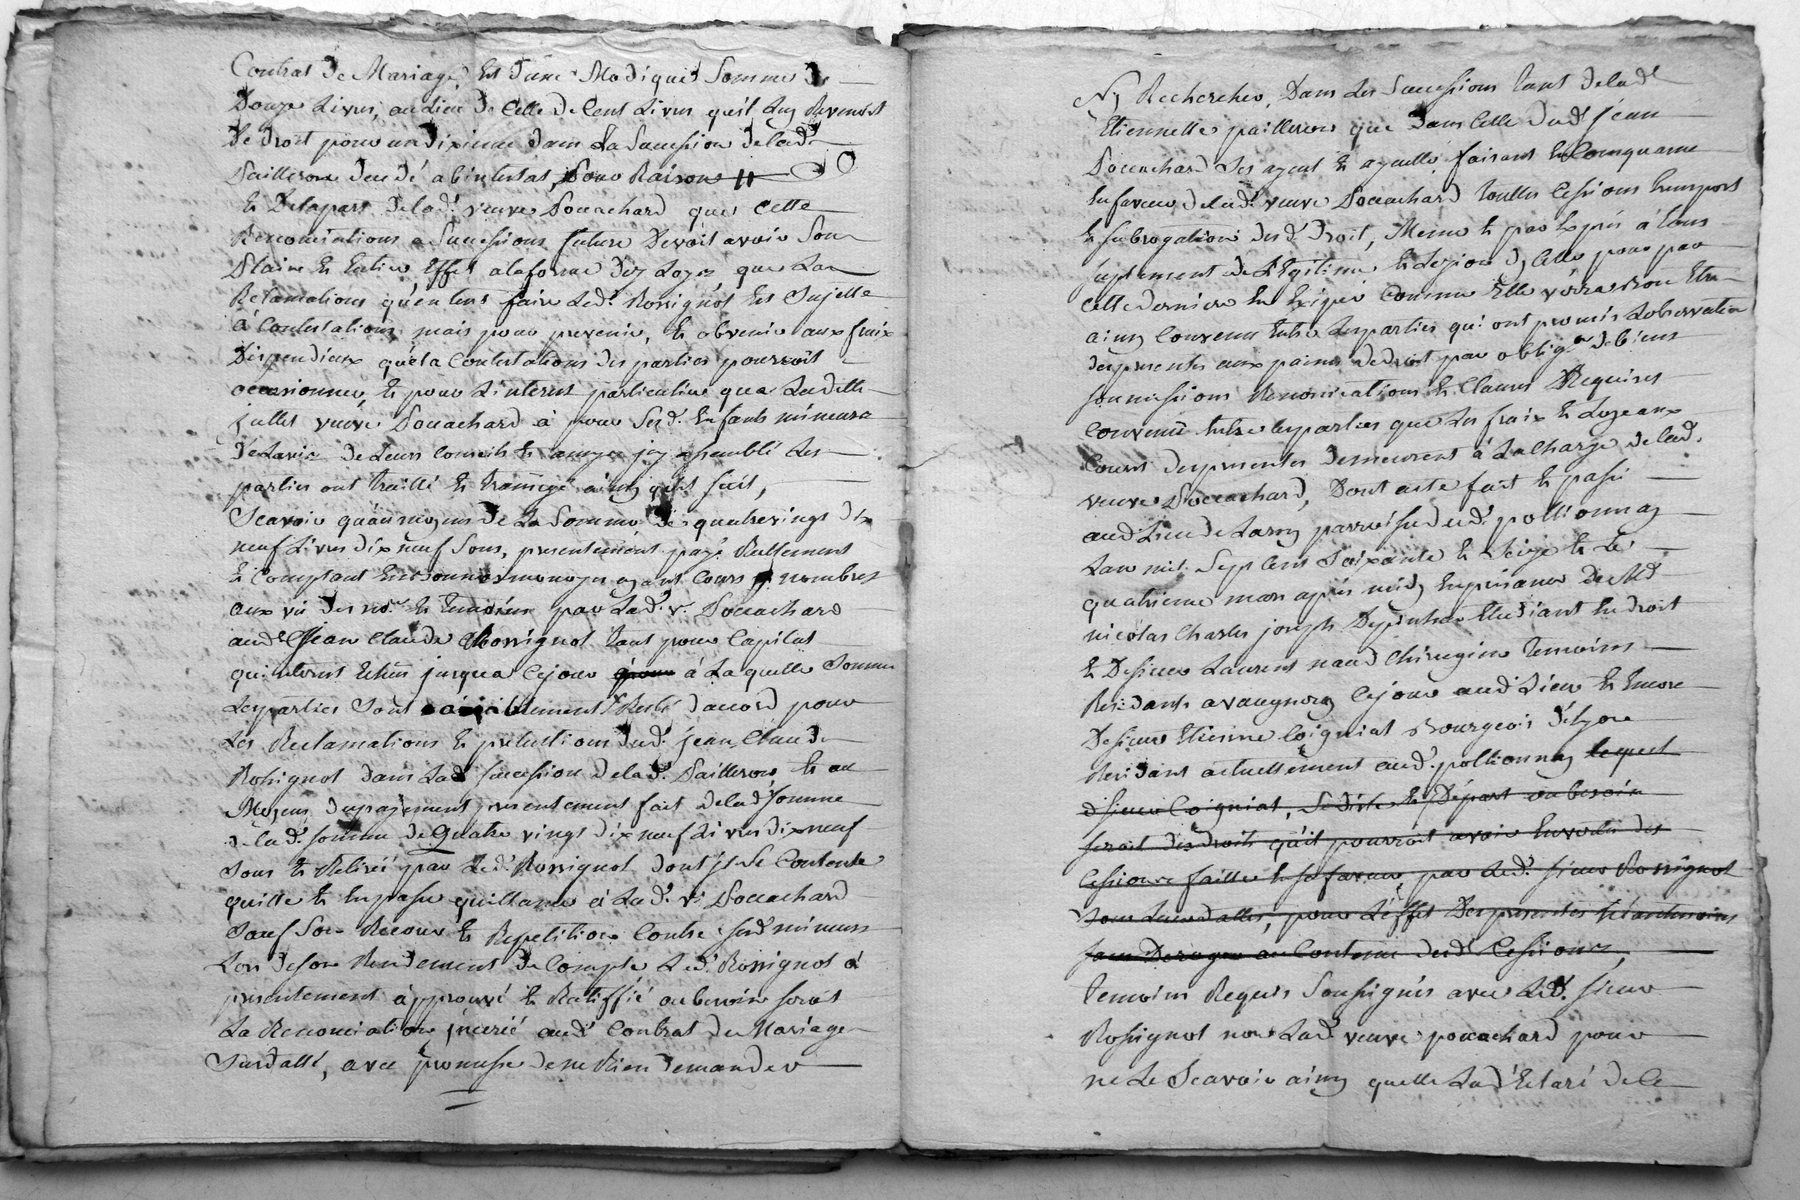 Contrat de Mariage, Est d'une Modique Somme de
Douze Livres, au Lieu de Celle de Cent Livres qu'il Luy Revenoit
de droit pour un dixieme dans La Succession de lad.e
Pailleron decedé abintestat, Pour Raisons
Et De la part de lad. veuve Pouachard que Cette
Renonciations a Successions future Devoit avoir Son
Plain Et Entier Effet a la forme des Loyx que La
Reclamations qu'en tens faire Led. Rossignol Est Sujette
à Contestations mais pour prevenir, Et obvenir aux fraix
Dispendieux que la Contestations des parties pourroit
occasionner, Et pour L'interest particulier que Laditte
jullet veuve Pouachard à pour Sesd. Enfants mineurs
De Lavis de Leurs Conseils Et amys icy assemblé Les
parties ont traitté Et transigé ainsy qu'il suit,
Scavoir qu'au moyens de La Somme de quatrevings dix
neuf Livres dix neuf Sous, presentement payé Reellement
Et Comptant En bonne monoyes ayant Cours Et nombrés
aux vû des no.res Et Temoins par Lad. v. Pouachard
aud. Jean Claude Rossignol tant pour Capital
qu'interest Echus jusqua Cejour a Laquelle Somme
Lesparties Sont amiablement Resté daccord pour
Les Reclamations Et pretentions dud. jean Claude
Rossignol dans Lad. succession de lad. Pailleron Et au
Moyens du payement presentement fait de lad. Somme
de lad. somme de Quatre vingt dix neuf Livres dix neuf
Sous Et Retiréé par Led. Rossignol dont il Se Contente
quitte Et En passe quittance à Lad. v. Pouachard
Sauf Son Recour Et Repetition Contre sesd. mineurs
Lors de son Rendement de Compte Led. Rossignol à
presentement approuvé Et Ratiffié au besoin seroit
La Renonciation inceréé aud. Contrat de Mariage
Surdatté, avec promesse de ne Rien demander
Ny Rechercher, Dans Les Successions tant de lad.
Etiennette pailleron que dans Celle dud. jean
Pouachard Les ayeul Et ayeulle, faisant En Consequance
En faveur de lad. veuve Pouachard touttes Cessions transport
Et subrogation desd. Droit, Meme Et par Exprés à tous
suplement de Legitime Et lezion d'y Celle pour par
Cette derniere En Exiger Comme Elle verra Bon Etre
ainsy Convenu Entre Lesparties qui ont promis Lobservation
des presentes aux peines de droit par oblig.on de biens
soumissions Renonciations Et Clauses Requises
Convenû Entre lesparties que Les fraix Et Loyeaux
Couts des presentes demeurent à La Charge de lad.
veuve Pouachard, Dont acte fait Et passé
aud. Lieu de Larny parroisse dud. pollionnay
Lan mil Sept Cent Soixante Et Seize Et Le
quatrieme mars après midy En presance de Md
nicolas Charles joseph Depinthon Etudiant En droit
Et De sieur Laurent naud Chirugien temoins
Residants a vaugneray Cejour aud. Lieu Et Encore
De sieur Etienne Coigniat Bourgeois de lyon
Residant actuellement aud. pollionnay lequel
d. sieur Coigniat, Se diste Et Départ au besoin
seroit des droits qu'il pourroit avoir En vertu des
Cessions faitte En sa faveur, par Led. sieur Rossignol
pour L'effet Des presentes
sans Deroger au Contenu desd. Cessions,
temoins Requis Soussignés avec Led. sieur
Rossignol non Lad. veuve pouachard pour
ne Le Scavoir ainsy quelle La d'Eclaré de Ce